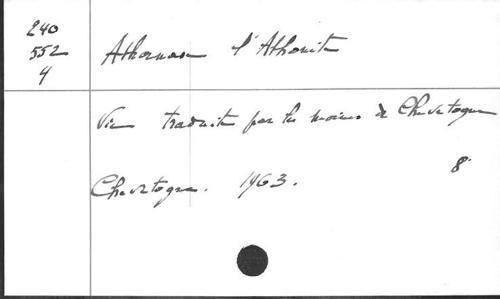 240
552
4
Athanase l'Athonite
Vie traduite par les moines de Chevetogne
8°
Chevetogne. 1963.